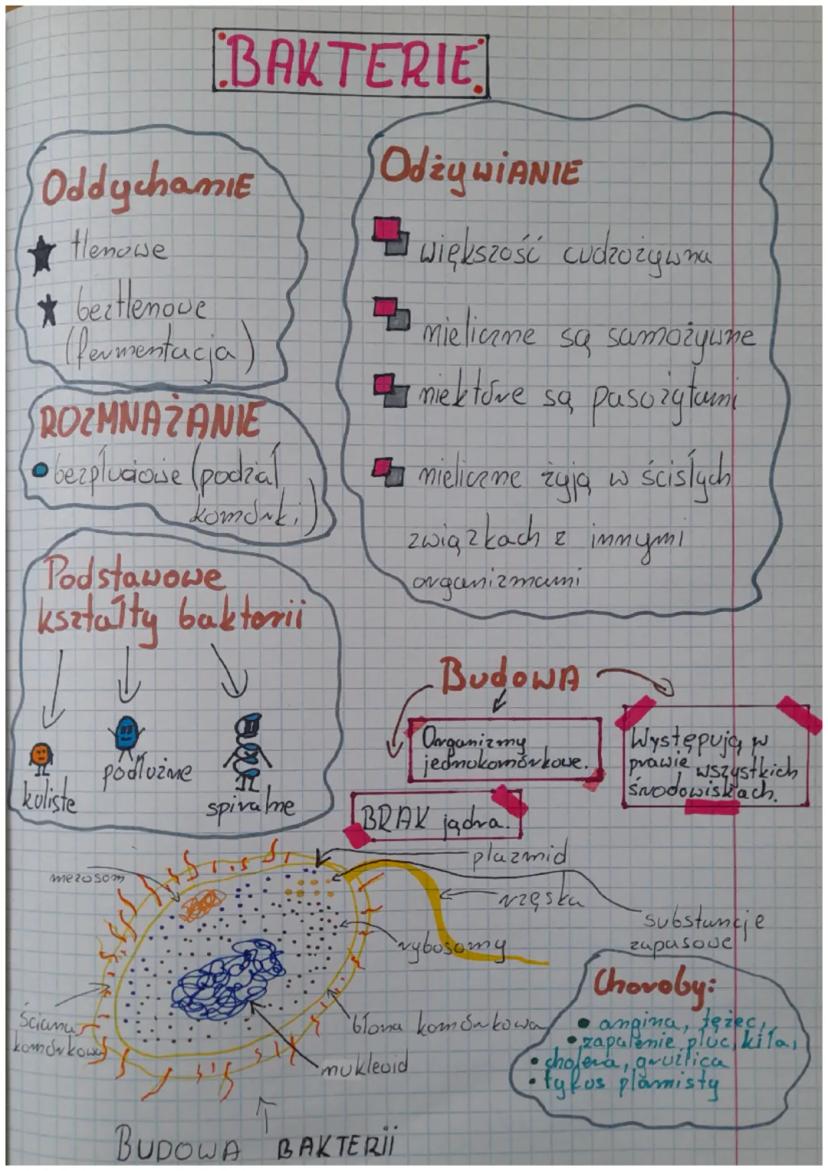 BAKTERIE
Oddychanie
tlenowe
beztlenowe
(fermentacja)
ROZMNAŻANIE
bezpłciowe (podział
komórki)
Podstawowe
kształty bakterii
koliste
podłużne
spiralne
Odżywianie
większość cudzożywna
nieliczne są samożywne
niektóre są pasożytami
nieliczne żyją w ścisłych
związkach z innymi
organizmami
Budowa
Organizmy
jednokomórkowe.
Występują w
prawie wszystkich
środowiskach.
BRAK jądra.
mezosom
plazmid
rzęska
substancje
zapasowe
rybosomy
ściana
komórkowa
błona komórkowa
nukleoid
BUDOWA BAKTERII
Choroby:
angina, tężec,
zapalenie płuc, kiła,
cholera, gruźlica
tyfus plamisty